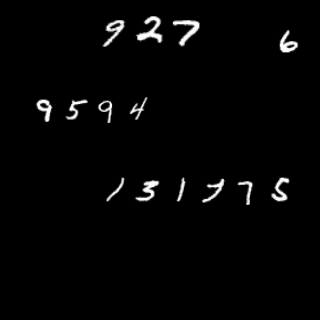 927 6
9594
131 75